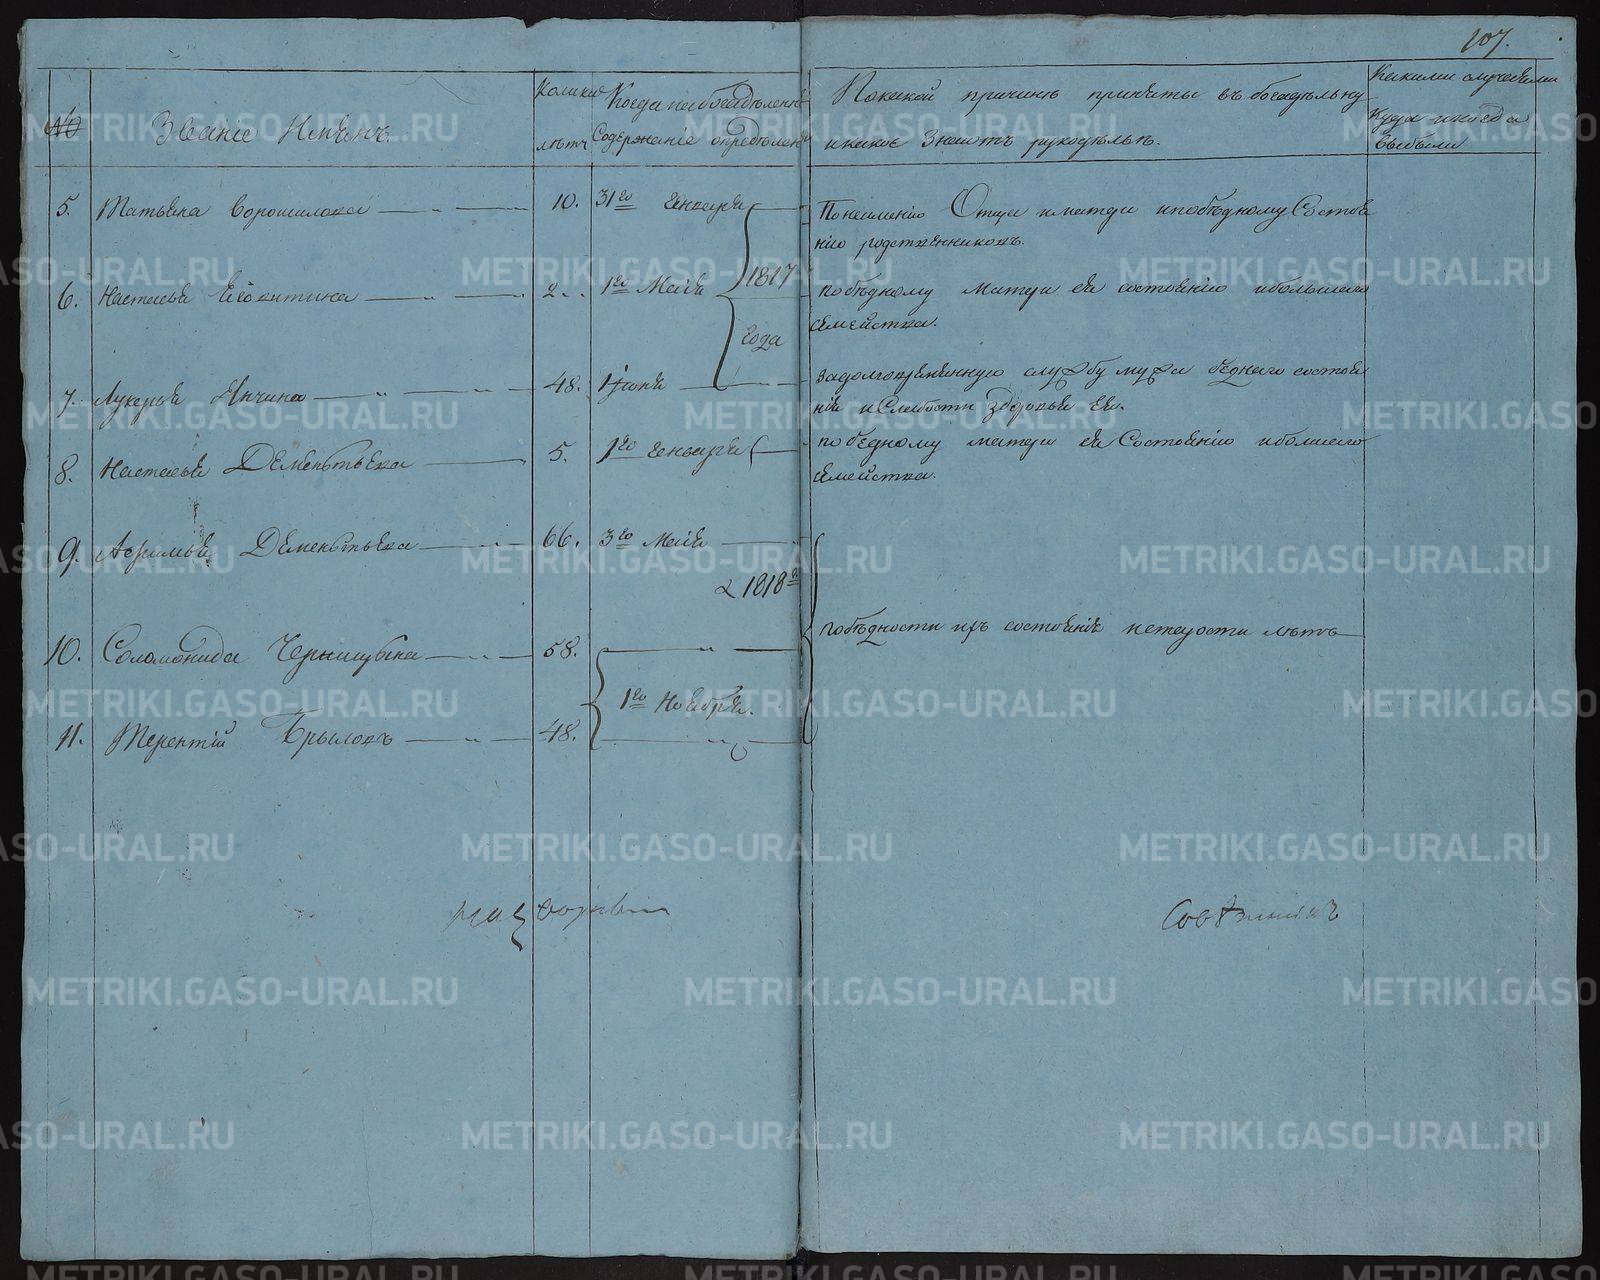 107.
№
Званіе Ичинъ.
Колико
лѣтъ
Когда на богадѣленно
Содержаніе опредѣлен
По какой причинѣ приняты въ богадѣльну
и какое Знаютъ рукодѣлье.
Какими случаями
Куда и когда
выбыли
5. Татьяна Ворошилова 10. 31го Генваря
По неимѣнію Отца и матери и по бѣдному Состоя
нію родственниковъ.
1817
года
6. Настасья 2. 1го Маія
по бѣдному матери ея состоянію и большаго
семейства.
7. Лукерья Яичина 48. 1 Іюня
за долговремѣнную службу мужа беднаго состоя
нія и Слабости Здоровья ея.
8. Настасья Деменьтьева 5. 1го Генваря
по бедному матери ея Состоянію и большаго
семейства.
9. Афимья Деменьтьева 66. 3го Маія
1818
по бѣдности ихъ состоянія и старости лѣтъ
10. Соломонида 58.
1го Ноября.
11. Терентій Брыловъ 48.
METRIKI.GASO-URAL.RU